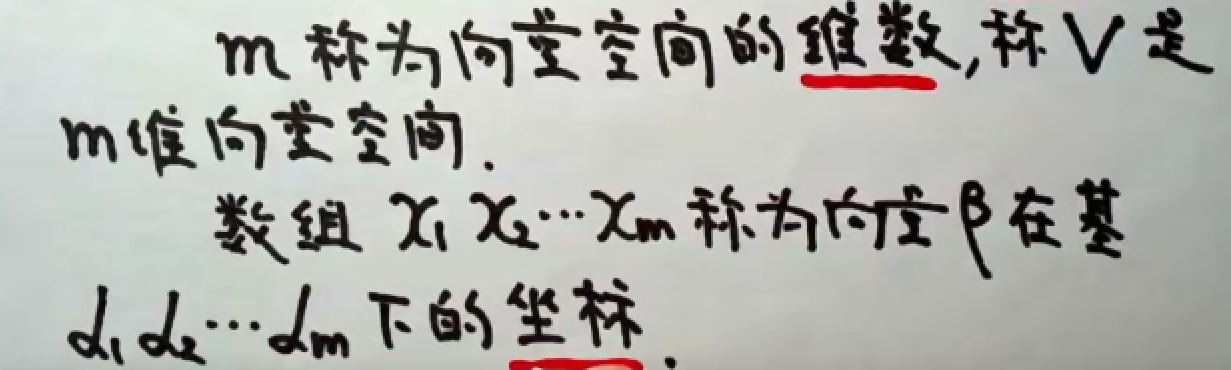 m 称为向量空间的维数,称 V 是
m维向量空间.
数组 x₁ x₂…xₘ 称为向量β在基
α₁ α₂…αₘ 下的坐标.